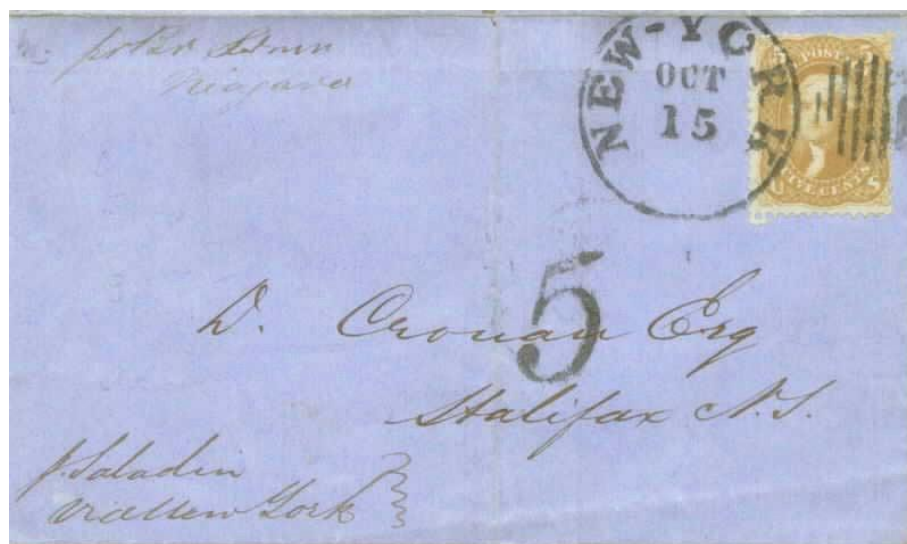 per Str
Niagara
NEW-YORK
OCT
15
5 POST 5
FIVE CENTS
5
D. Cronan Esq
Halifax N.S.
p. Saladin
via New York